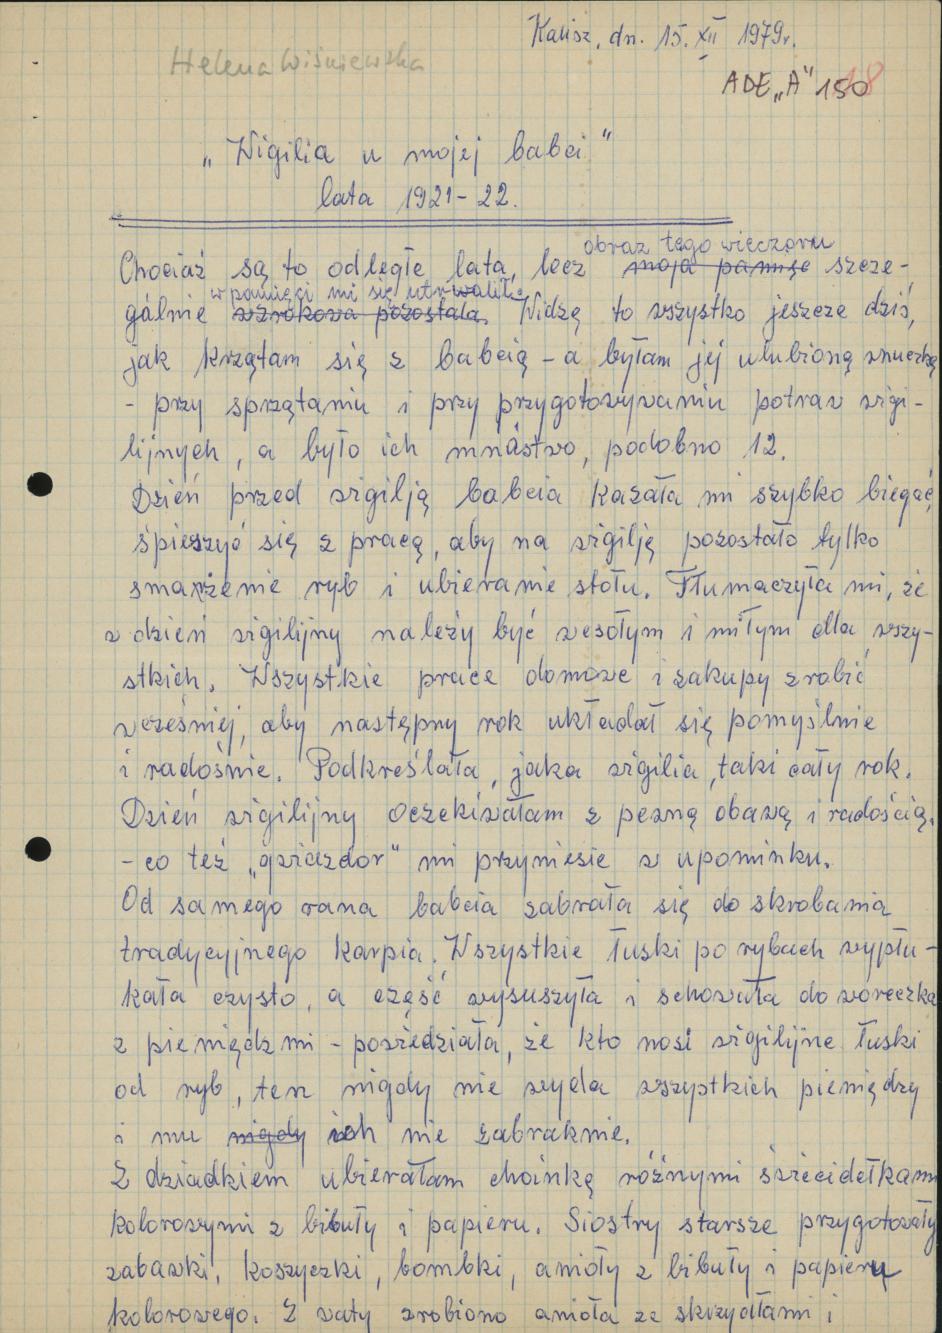 Kalisz, dn. 15. XII 1979r.
Helena Wiśniewska
ADE „A" 150
18
„Wigilia u mojej babci"
lata 1921-22.
obraz tego wieczoru
Chociaż są to odległe lata, lecz moja pamięć szcze-
w pamięci mi się utrwaliła
gólnie wzrokowa pozostała. Widzę to wszystko jeszcze dziś,
jak krzątam się z babcią - a byłam jej ulubioną wnuczką
- przy sprzątaniu i przy przygotowywaniu potraw wigi-
lijnych, a było ich mnóstwo, podobno 12.
Dzień przed wigilją babcia kazała mi szybko biegać,
śpieszyć się z pracą, aby na wigilję pozostało tylko
smażenie ryb i ubieranie stołu. Tłumaczyła mi, że
w dzień wigilijny należy być wesołym i miłym dla wszy-
stkich. Wszystkie prace domowe i zakupy zrobić
wcześniej, aby następny rok układał się pomyślnie
i radośnie. Podkreślała, jaka wigilia, taki cały rok.
Dzień wigilijny oczekiwałam z pewną obawą i radością.
- co też „gwiazdor" mi przyniesie w upominku.
Od samego rana babcia zabrała się do skrobania
tradycyjnego karpia. Wszystkie łuski po rybach wypłu-
kała czysto, a część wysuszyła i schowała do woreczka
z pieniędzmi - powiedziała, że kto nosi wigilijne łuski
od ryb, ten nigdy nie wyda wszystkich pieniędzy
i mu nigdy ich nie zabraknie.
Z dziadkiem ubierałam choinkę różnymi świecidełkami
kolorowymi z bibuły i papieru. Siostry starsze przygotowały
zabawki, koszyczki, bombki, anioły z bibuły i papieru
kolorowego. Z waty zrobiono anioła ze skrzydłami i